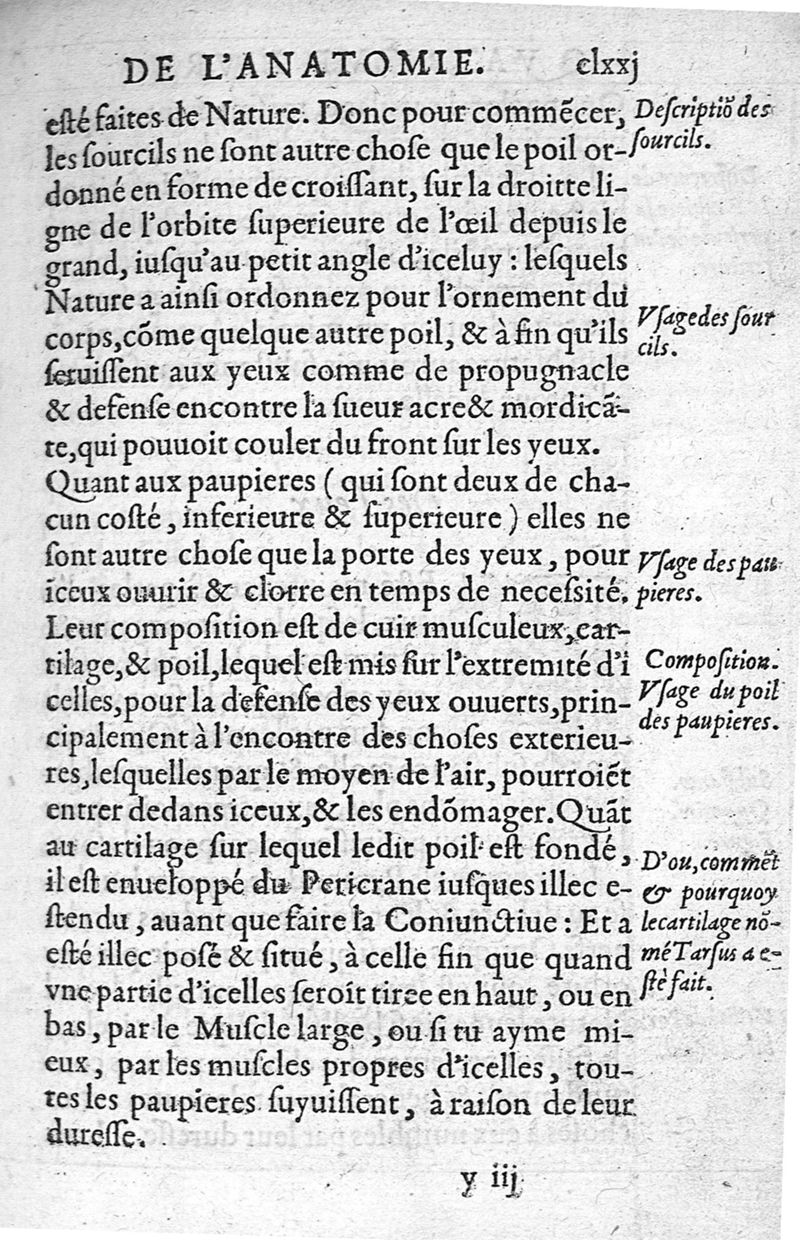 DE L'ANATOMIE. clxxj
esté faites de Nature. Donc pour commēcer,
les ſourcils ne ſont autre choſe que le poil or-
donné en forme de croiſſant, ſur la droitte li-
gne de l'orbite ſuperieure de l'œil depuis le
grand, iuſqu'au petit angle d'iceluy : leſquels
Nature a ainſi ordonnez pour l'ornement du
corps,cōme quelque autre poil, & à fin qu'ils
ſeruiſſent aux yeux comme de propugnacle
& defenſe encontre la ſueur acre& mordicā-
te,qui pouuoit couler du front ſur les yeux.
Quant aux paupieres ( qui ſont deux de cha-
cun coſté, inferieure & ſuperieure ) elles ne
ſont autre choſe que la porte des yeux, pour
iceux ouurir & clorre en temps de neceſsité.
Leur compoſition eſt de cuir muſculeux,car-
tilage,& poil,lequel eſt mis ſur l'extremité d'i
celles,pour la defenſe des yeux ouuerts,prin-
cipalement à l'encontre des choſes exterieu-
res,leſquelles par le moyen de l'air, pourroiēt
entrer dedans iceux,& les endōmager.Quāt
au cartilage ſur lequel ledit poil eſt fondé,
il eſt enueloppé du Pericrane iuſques illec e-
ſtendu, auant que faire la Coniunctiue : Et a
eſté illec poſé & ſitué, à celle fin que quand
vne partie d'icelles ſeroit tiree en haut, ou en
bas, par le Muſcle large, ou ſi tu ayme mi-
eux, par les muſcles propres d'icelles, tou-
tes les paupieres ſuyuiſſent, à raiſon de leur
dureſſe.
y iij
Deſcriptiō des
ſourcils.
Vſage des ſour
cils.
Vſage des pau-
pieres.
Compoſition.
Vſage du poil
des paupieres.
D'ou,commēt
& pourquoy
le cartilage nō-
mé Tarſus a e-
ſté fait.